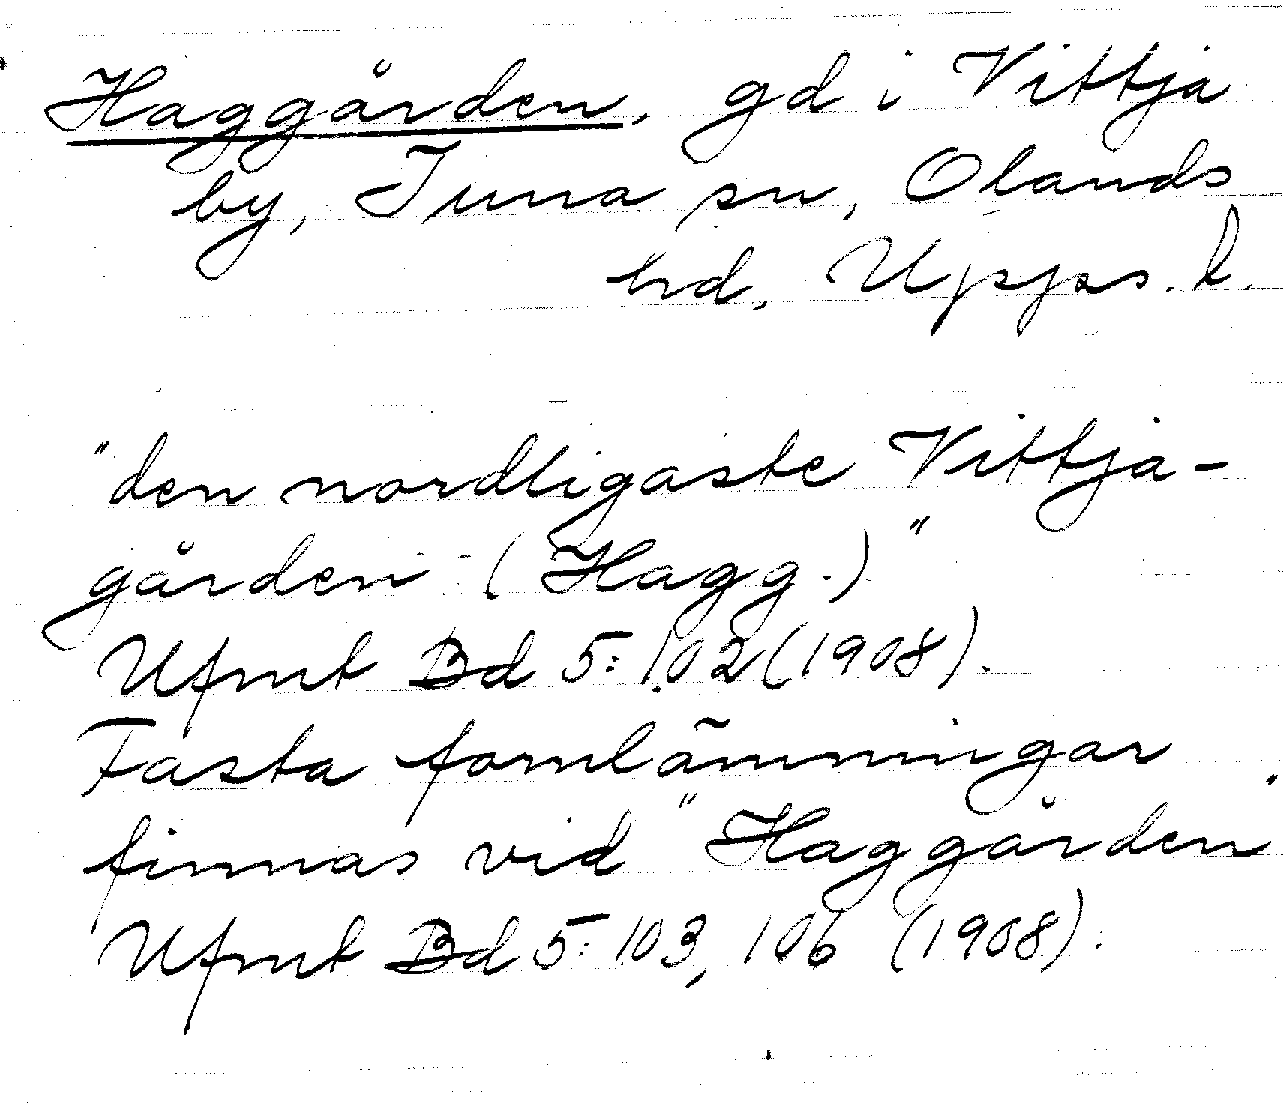 Haggården, gd i Vittja
by, Tuna sn, Olands
hd, Upps. l.
"den nordligaste Vittja-
gården (Hagg.)"
Ufmt Bd 5: 102 (1908).
Fasta fornlämningar
finnas vid "Haggården"
Ufmt Bd 5: 103, 106 (1908).